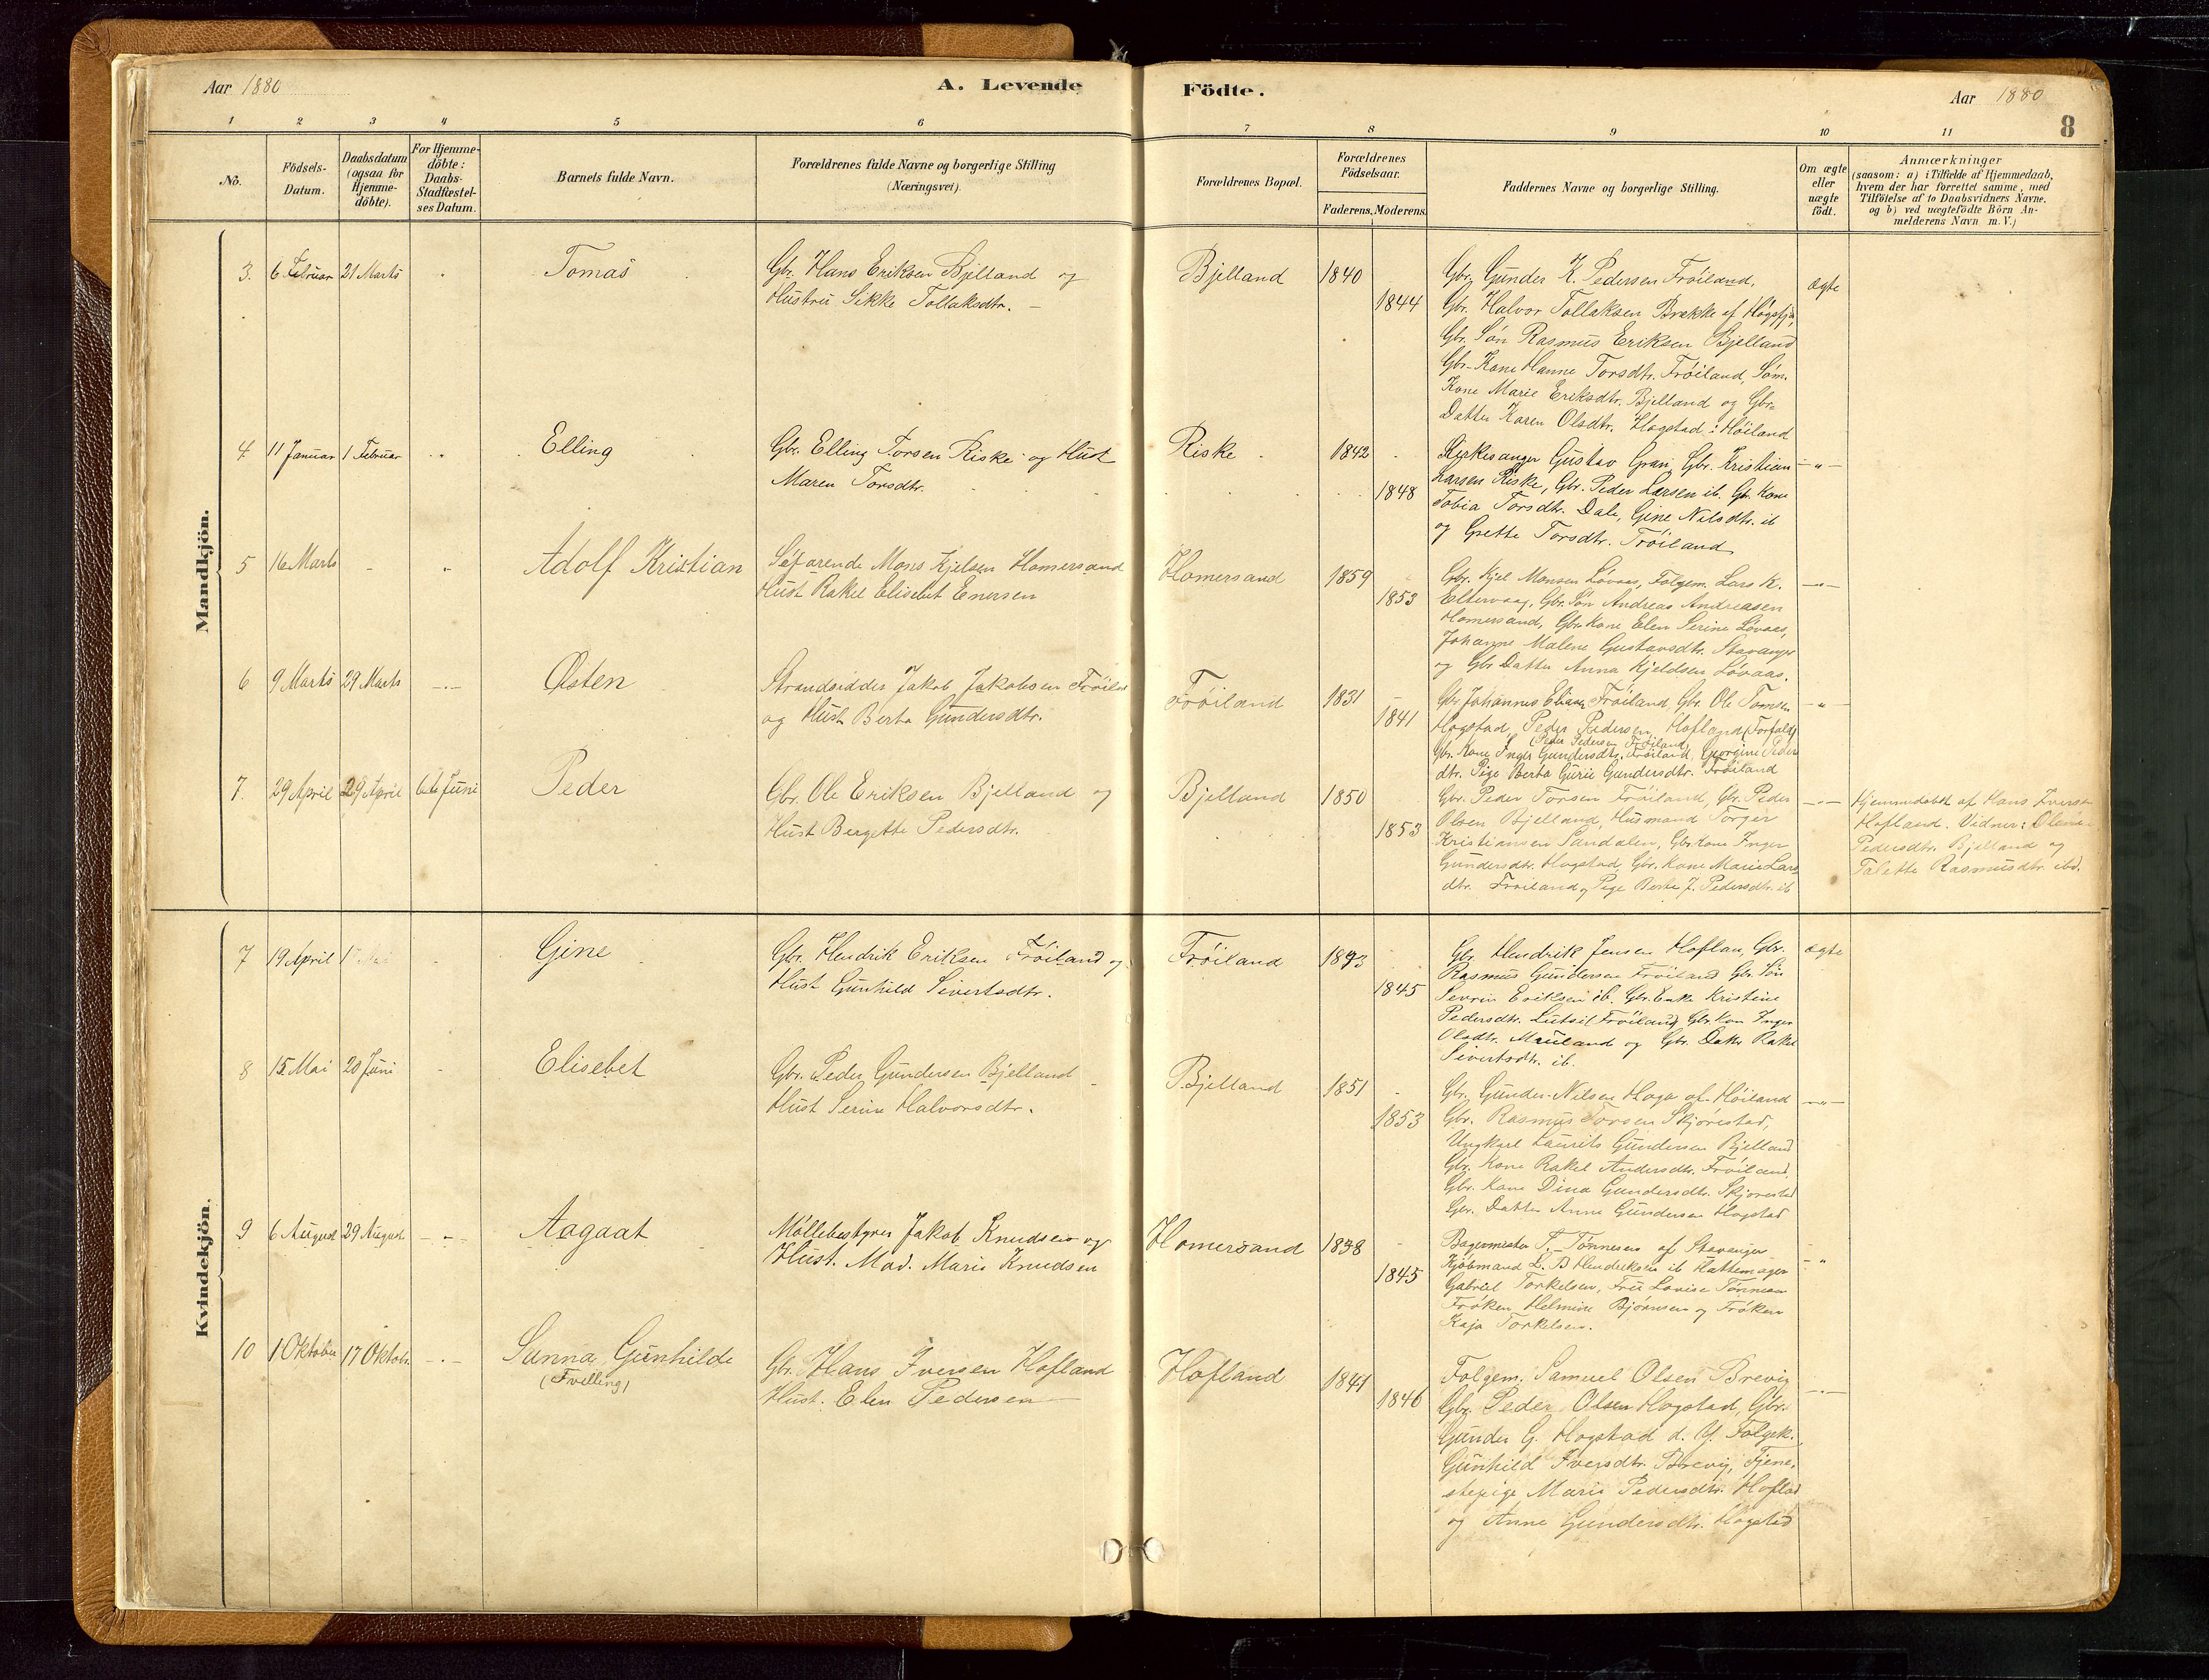 Aar 1880
A. Levende Födte.
Aar 1880
8
1 2 3 4 5 6 7 8 9 10 11
No.
Födsels-Datum.
Daabsdatum (ogsaa for Hjemme-döbte).
For Hjemme-döbte: Daabs-Stadfæstel-ses Datum.
Barnets fulde Navn.
Forældrenes fulde Navne og borgerlige Stilling (Næringsvei).
Forældrenes Bopæl.
Forældrenes Födselsaar.
Faderens. Moderens.
Faddernes Navne og borgerlige Stilling.
Om ægte eller uægte födt.
Anmærkninger (saasom: a) i Tilfælde af Hjemmedaab, hvem der har forrettet samme, med Tilföielse af to Daabsvidners Navne, og b) ved uægtefödte Börn An-melderens Navn m. V.)
Mandkjön.
3. 6 Februar 21 Marts Tomas
Gbr. Hans Eriksen Bjelland og
Hustru Sikke Tollaksdtr. –
Bjelland 1840 1844
Gbr. Gunder K. Pedersen Fröiland,
Gbr. Halvor Tollaksen Brekke af Högsfj.,
Gbr. Sön Rasmus Eriksen Bjelland
Gbr. Kone Hanne Torsdtr. Fröiland, Söm.
Kone Marie Eriksdtr. Bjelland og Gbr.
Datter Karen Olsdtr. Hogstad i Höiland
ægte
4. 11 Januar 1 Februar Elling
Gbr. Elling Torsen Riske og Hust
Maren Torsdtr.
Riske 1842 1848
Kirkesanger Gustav Gran, Gbr. Kristian
Larsen Riske, Gbr. Peder Larsen ib. Gb. Kone
Tobia Torsdtr. Dale, Gine Nilsdtr. ib
og Grette Torsdtr. Fröiland
– " –
5 16 Marts Adolf Kristian
Söfarende Mons Kjelsen Homersand
Hust Rakel Elisebet Enersen
Homersand 1859 1853
Gbr. Kjel Monsen Lövaas, Folgem. Lars K.
Eltervaag, Gbr. Sön Andreas Andreasen
Homersand, Gbr. Kone Elen Serine Lövaas,
Johanne Malene Gustavsdtr. Stavanger
og Gbr Datter Anna Kjeldsen Lövaas.
– " –
6 9 Marts 29 Marts Østen
Strandsidder Jakob Jakobsen Fröiland
og Hust Berta Gundersdtr.
Fröiland 1831 1841
Gbr Johannes Fröiland Gbr. Ole Tomsen
Hogstad, Peder Pedersen Hofland (Forfald)
(Peder Pedersen Fröiland)
Gbr. Kone Inger Gundersdtr. Fröiland, Georgine Peder
dtr. Pige Berta Gurie Gundersdtr. Fröiland
– " –
7. 29 April 29 April 6te Juni Peder
Gbr. Ole Eriksen Bjelland og
Hust Bergette Pedersdtr.
Bjelland 1850 1853
Gbr. Peder Torsen Fröiland, Gbr. Peder
Olsen Bjelland, Husmand Torger
Kristiansen Sandalen, Gbr. Kone Inger
Gundersdtr. Hogstad, Gbr. Kone Marie Lars
dtr. Fröiland og Pige Berte J. Pedersdtr. ib
– " –
Hjemmedöbt af Hans Iversen
Hofland. Vidner:
Pedersdtr. Bjelland og
Talette Rasmusdtr. ibd.
Kvindekjön.
7 19 April Gine
Gbr. Hendrik Eriksen Fröiland og
Hust Gunhild Sivertsdtr.
Fröiland 1843 1845
Gbr. Hendrik Jensen Hoflan, Gbr.
Rasmus Gundersen Fröiland Gbr. Sön
Severin Eriksen ib. Gbr. Enke Kristine
Pedersdtr. Lutsi (Fröiland) Gbr Kon Inger
Olsdtr. Mæland og Gbr. Datr Rakel
Sivertsdtr. ib.
ægte
8 15 Mai 20 Juni Elisebet
Gbr. Peder Gundersen Bjelland
Hust Serine Halvorsdtr.
Bjelland 1851 1853
Gbr. Gunder Nilsen Hoga af Höiland
Gbr. Rasmus Torsen Skjörestad,
Ungkarl Laurits Gundersen Bjelland
Gbr. Kone Rakel Andersdtr. Fröiland,
Gbr. Kone Dina Gundersdtr. Skjörestad
Gbr. Datter Anne Gundersen Hogstad
– " –
9 6 August 29 August Aagaat
Möllebestyrer Jakob Knudsen og
Hust. Mad. Marie Knudsen
Homersand 1838 1845
Bagermester T. Tönnesen af Stavanger
Kjöbmand L. B Hendriksen ib Hattemager
Gabriel Torkelsen, Fru Lovise Tönnesen
Fröken Helmine Björnsen og Fröken
Kaja Torkelsen.
– " –
10 1 Oktober 17 Oktobr. Sanna Gunhilde
(Tvilling)
Gbr. Hans Iversen Hofland
Hust. Elen Pedersen
Hofland 1841 1846
Folgem. Samuel Olsen Brevig
Gbr. Peder Olsen Hogstad, Gbr.
Gunder G. Hogstad d. Y. Folgek.
Gunhild Iversdtr. Brevig, Tjene-
stepige Marie Pedersdtr. Hofland
og Anne Gundersdtr. Hogstad
– " –